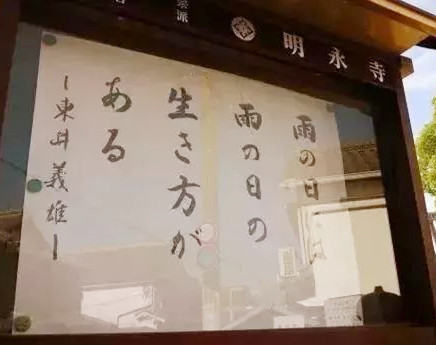 宗派
明永寺
雨の日
雨の日の
生き方が
ある
ー東井義雄ー